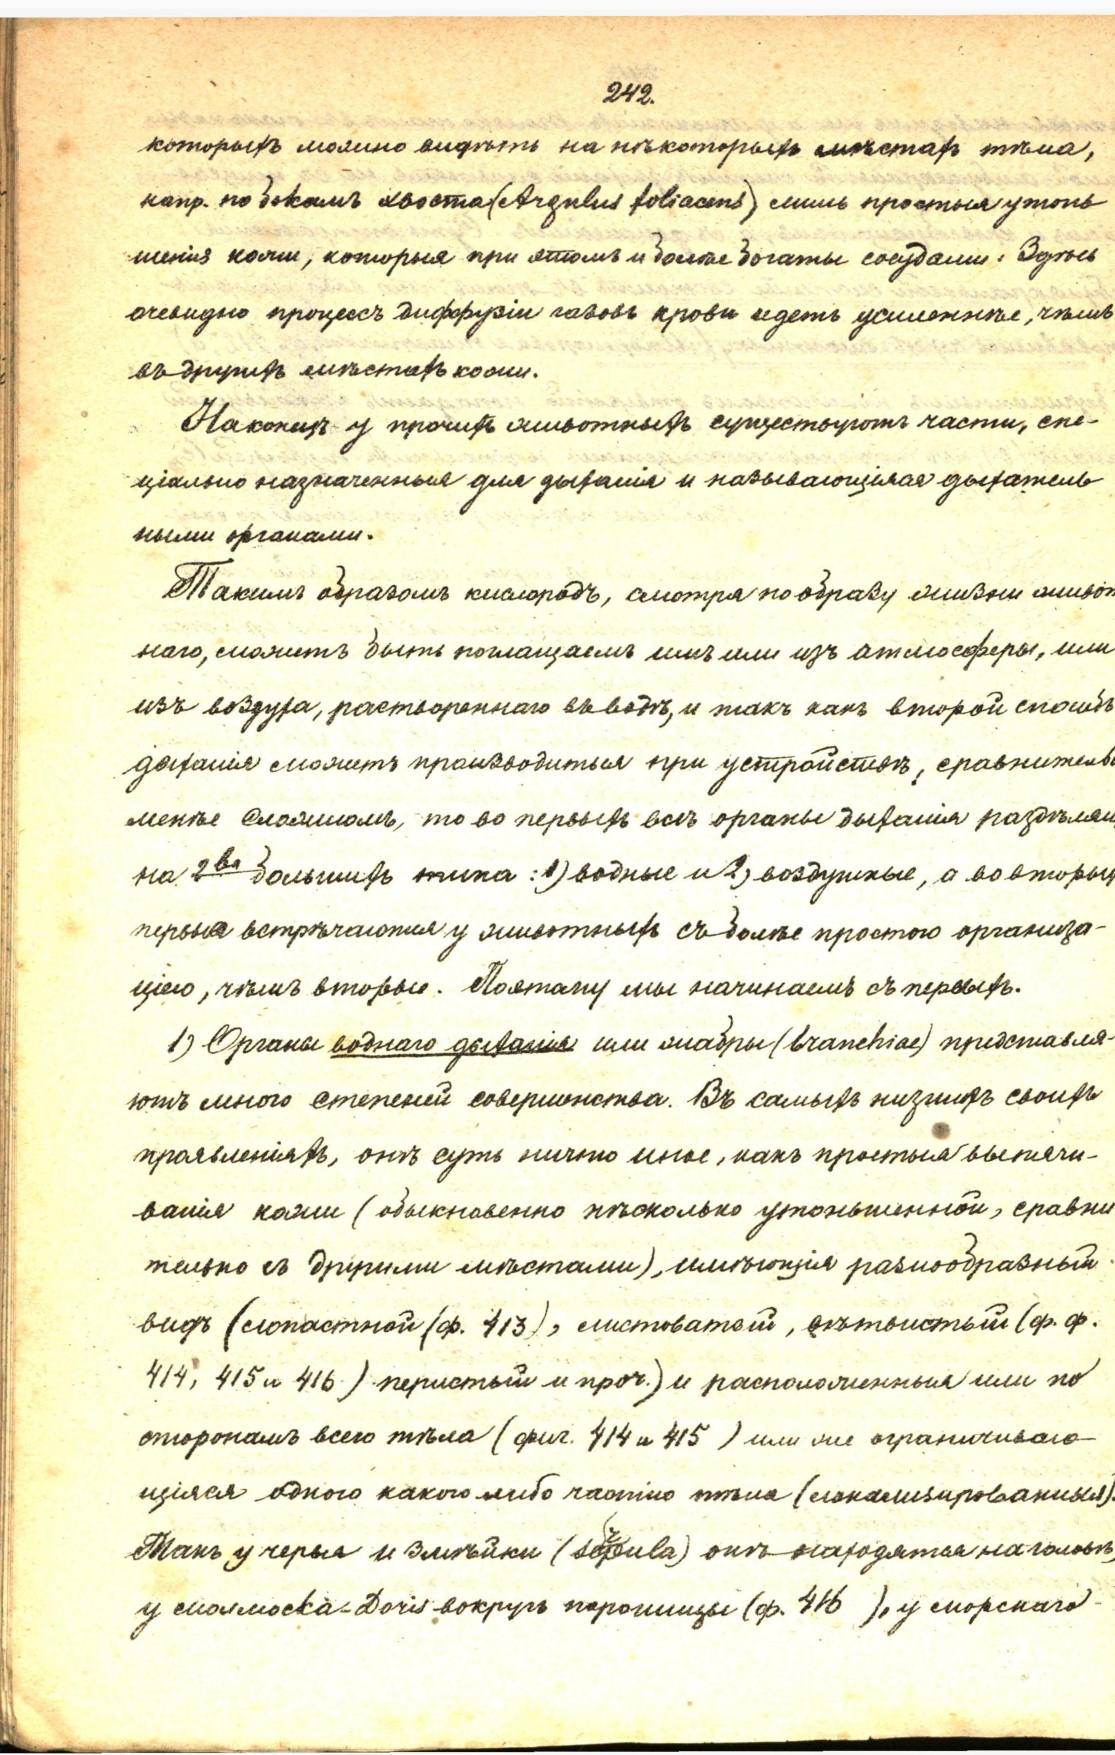 242.
которыхъ можно видѣть на нѣкоторыхъ мѣстахъ тѣла,
напр. по бокамъ хвоста (Argulus foliaceus) лишь простыя утонь
шенія кожи, которыя при этомъ и болѣе богаты сосудами. Здѣсь
очевидно процессъ диффузіи газовъ крови идетъ усиленнѣе, чѣмъ
въ другихъ мѣстахъ кожи.
Наконецъ у прочихъ животныхъ существуютъ части, спе-
ціально назначенныя для дыханія и называющіяся дыхатель
ными органами.
Такимъ образомъ кислородъ, смотря по образу жизни живот
наго, можетъ быть поглощаемъ имъ или изъ атмосферы, или
изъ воздуха, раствореннаго въ водѣ, и такъ какъ второй способъ
дыханія можетъ производиться при устройствѣ, сравнительн
менѣе сложномъ, то во первыхъ всѣ органы дыханія раздѣляю
на 2ва большихъ типа: 1) водные и 2) воздушные, а во вторых
первые встрѣчаются у животныхъ съ болѣе простою организа-
ціею, чѣмъ вторые. Поэтому мы начинаемъ съ первыхъ.
1) Органы воднаго дыханія или жабры (branchiae) представля-
ютъ много степеней совершенства. Въ самыхъ низшихъ своихъ
проявленіяхъ, онѣ суть ничто иное, какъ простыя вытячи-
ванія кожи (обыкновенно нѣсколько утоньшенной, сравни
тельно съ другими мѣстами), имѣющія разнообразный
видъ (лопастной (ф. 413), листоватый, вѣтвистый (ф. ф.
414, 415 и 416) перистый и проч.) и расположенныя или по
сторонамъ всего тѣла (фиг. 414 и 415) или же ограничиваю-
щіяся одного какого либо частію тѣла (локализированныя).
Такъ у червя и змѣйки (Serpula) онѣ находятся на головѣ,
у моллюска Doris вокругъ порошицы (ф. 416), у морскаго